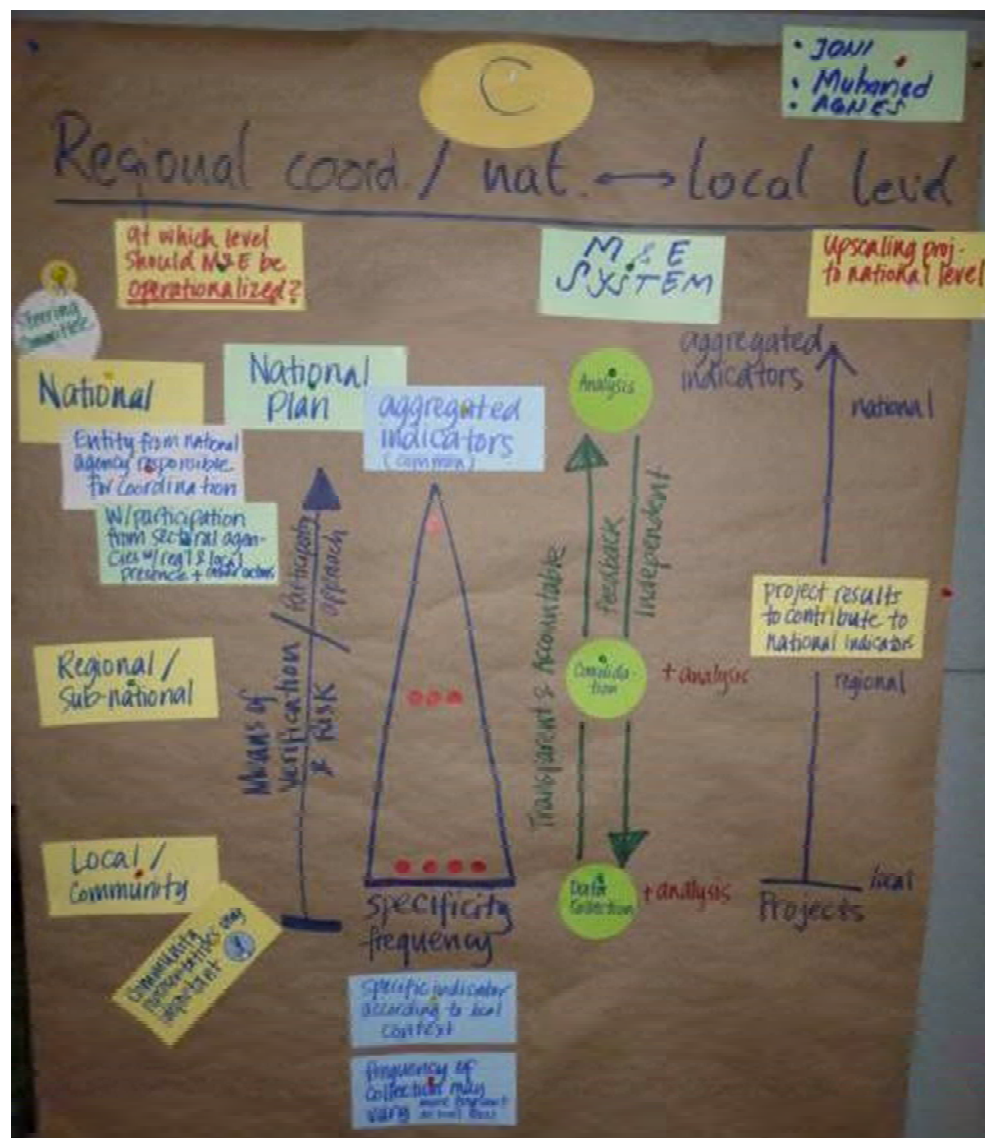 C
• JONI
• Muhamed
• AGNES
Regional coord. / nat. ↔ local level
at which level
should M&E be
operationalized?
M & E
SYSTEM
Upscaling proj-
to national level
Steering
Committee
National
National
Plan
aggregated
indicators
(common)
Entity from national
agency responsible
for coordination
W/participation
from sectoral agen-
cies w/ reg'l & local
presence +
Regional /
Sub-national
Local /
Community
Community
representatives very
important
Means of
verification
& Risk
/ Participatory
approach
specificity
frequency
specific indicator
according to local
context
frequency of
collection may
vary more frequent
at local level
Analysis
Feedback
Independent
Transparent & Accountable
Consolida-
tion
+ analysis
Data
Collection
+ analysis
aggregated
indicators
national
project results
to contribute to
national indicators
regional
local
Projects